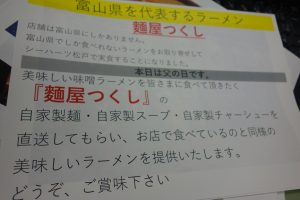 富山県を代表するラーメン
麺屋つくし
店舗は富山県にしかありません。
富山県でしか食べれないラーメンをお取り寄せして
シーハーツ松戸で実食することになりました。
本日は父の日です。
美味しい味噌ラーメンを皆さまに食べて頂きたく
『麺屋つくし』の
自家製麺・自家製スープ・自家製チャーシューを
直送してもらい、お店で食べているのと同様の
美味しいラーメンを提供いたします。
どうぞ、ご賞味下さい